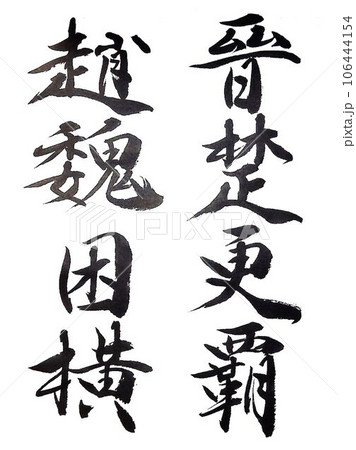 晉楚更覇
趙魏困横
pixta.jp - 106444154
PIXTA